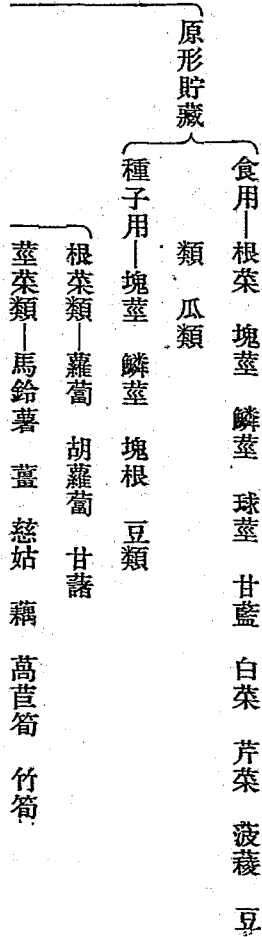 原形貯藏
食用—根菜　塊莖　鱗莖　球莖　甘藍　白菜　芹菜　菠薐　豆
類　瓜類
種子用—塊莖　鱗莖　塊根　豆類
根菜類—蘿蔔　胡蘿蔔　甘藷
莖菜類—馬鈴薯　薑　慈姑　藕　萵苣筍　竹筍